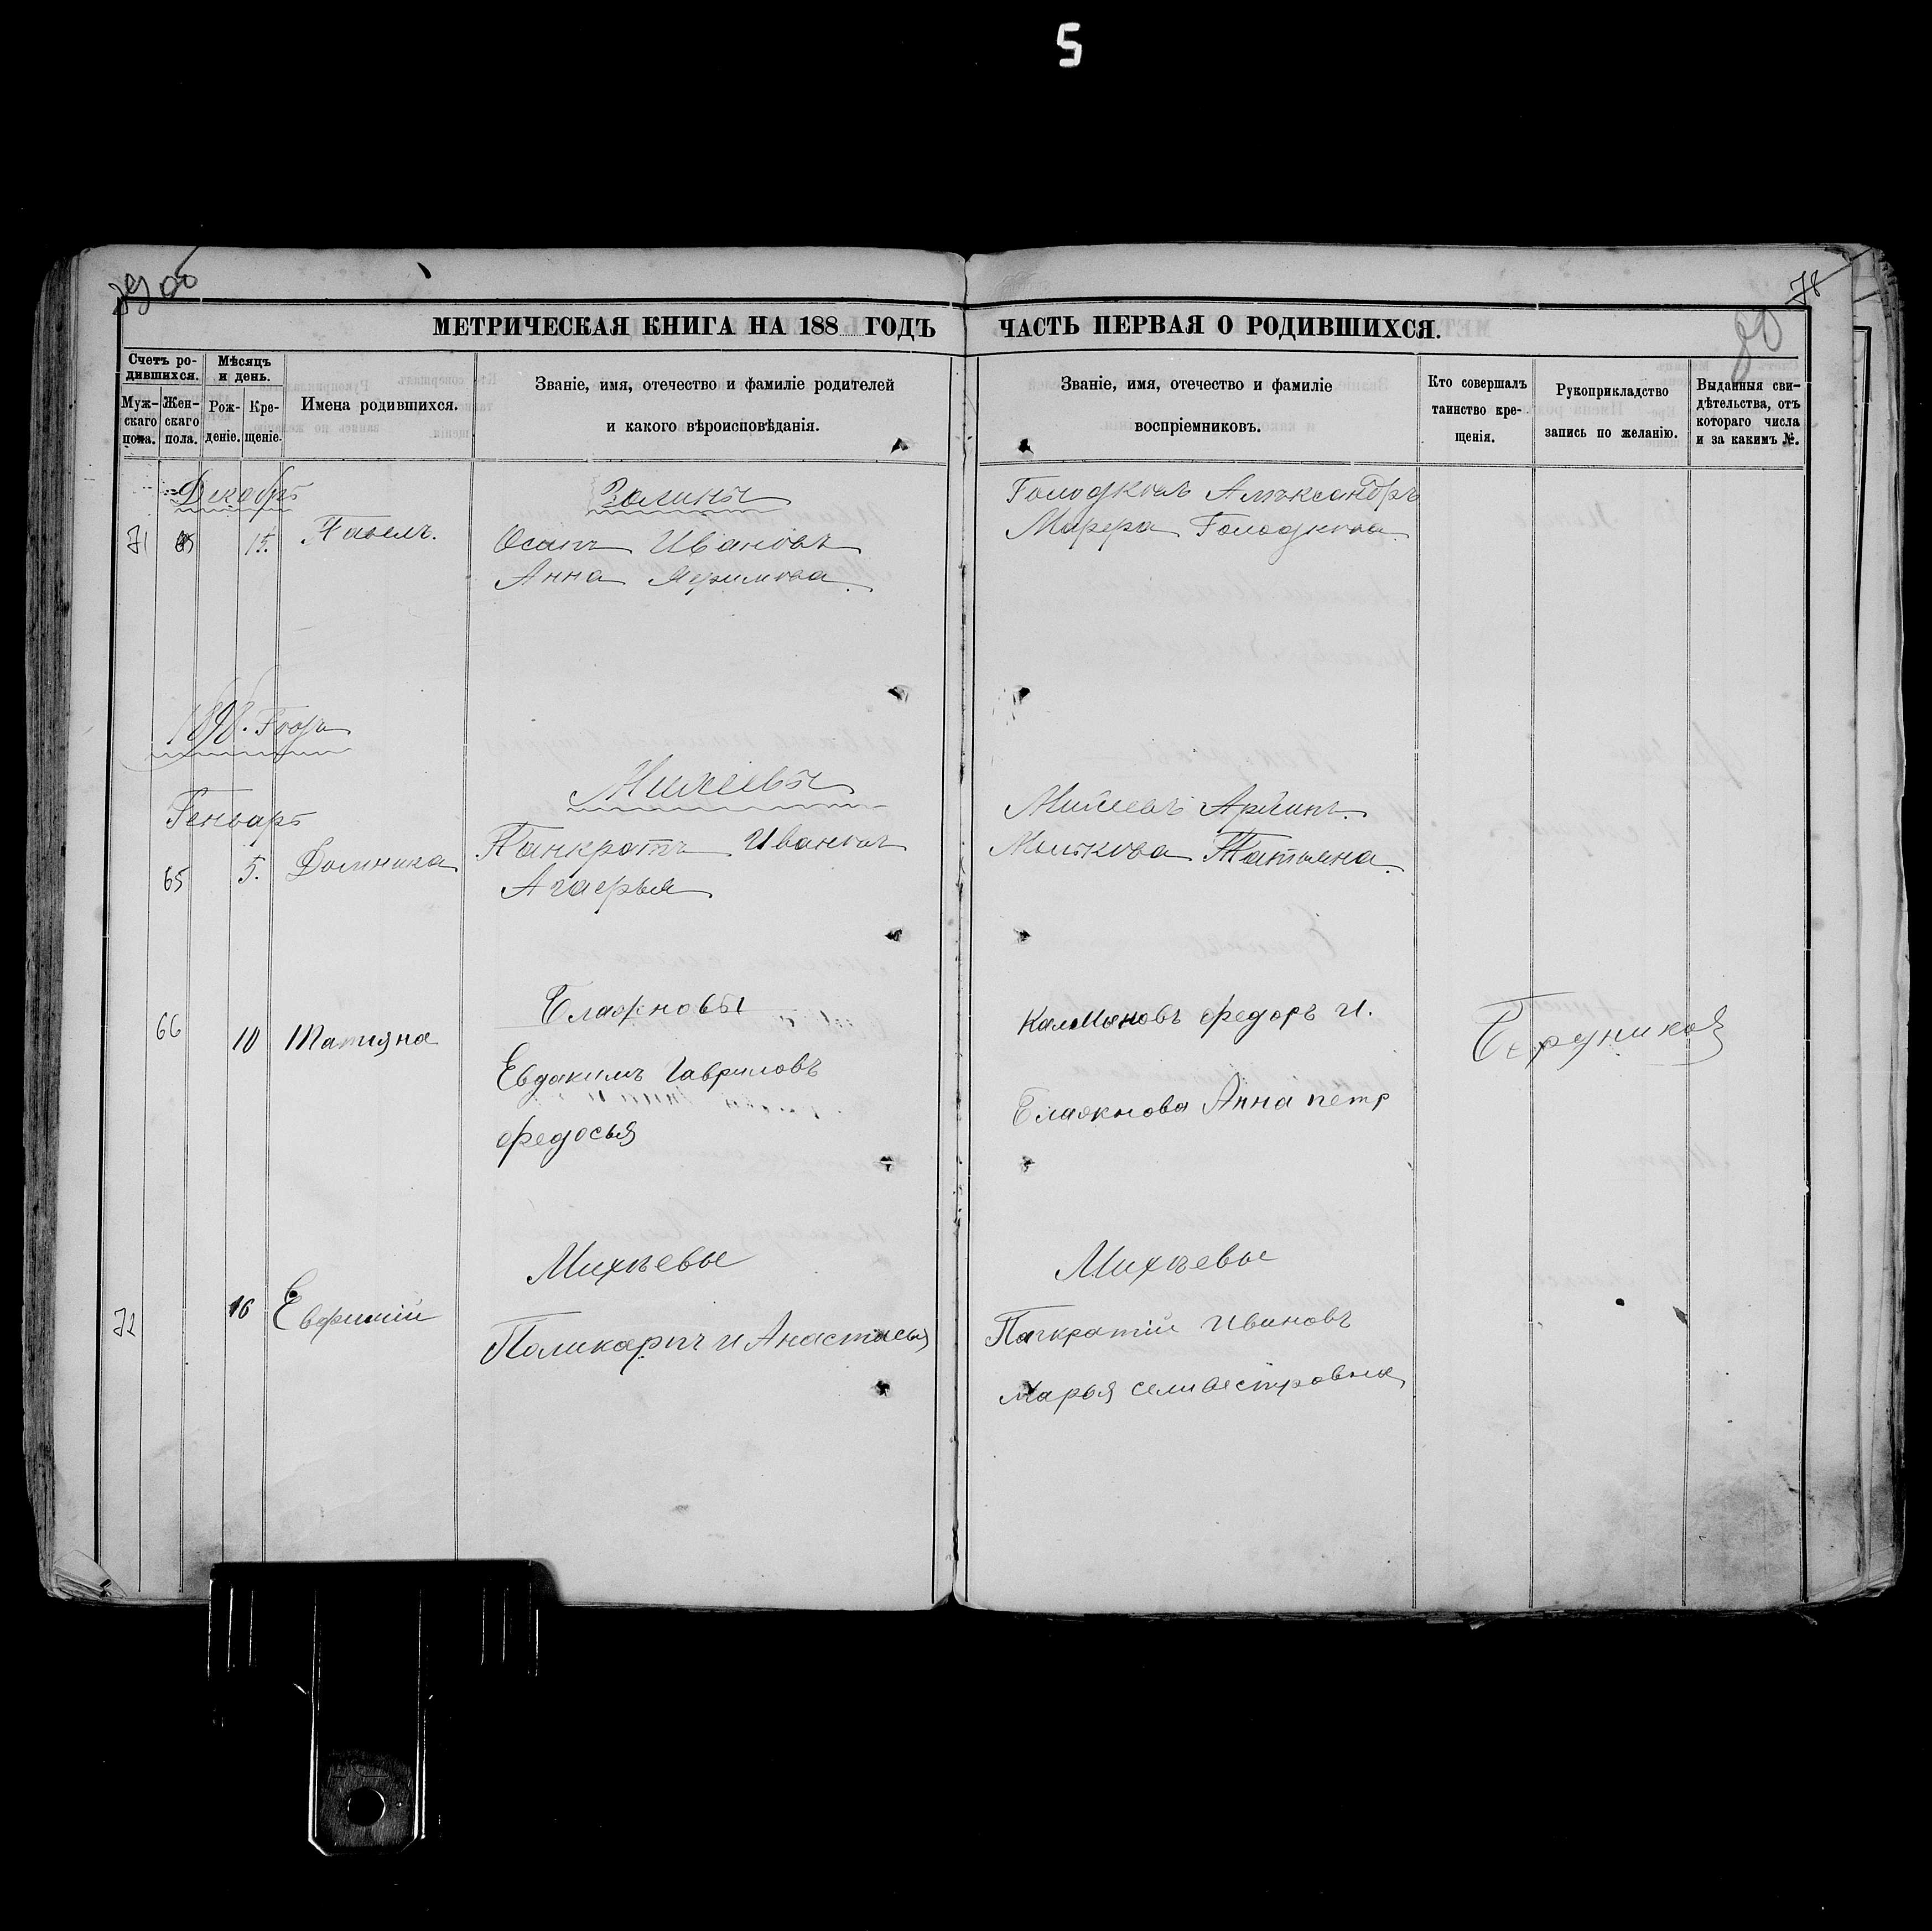 5
78
80
МЕТРИЧЕСКАЯ КНИГА НА 188 ГОДЪ
ЧАСТЬ ПЕРВАЯ О РОДИВШИХСЯ.
Счетъ ро-
дившихся.
Муж-
скаго
пола.
Жен-
скаго
пола.
Мѣсяцъ
и день.
Рож-
деніе.
Кре-
щеніе.
Имена родившихся.
Званіе, имя, отечество и фамиліе родителей
и какого вѣроисповѣданія.
Званіе, имя, отечество и фамиліе
воспріемниковъ.
Кто совершалъ
таинство кре-
щенія.
Рукоприкладство
запись по желанію.
Выданныя сви-
дѣтельства, отъ
котораго числа
и за какимъ №.
Декабрь
71 15. Павелъ.
Золины
Осипъ Ивановъ
Анна
Голодковъ Александръ
Марфа Голодкова
1898. Года
Генварь
65 5. Домника
Михеевы
Панкратъ Ивановъ
Агафья
Михеевъ
Татьяна
66 10 Татияна
Блажновы
Евдокимъ Гавриловъ
Федосья
Федоръ И.
Блажнова Анна петр
72 16 Евфимий
Михѣевы
Поликарпъ и Анастасья
Михѣевы
Панкратій Ивановъ
Марья Селивестровна